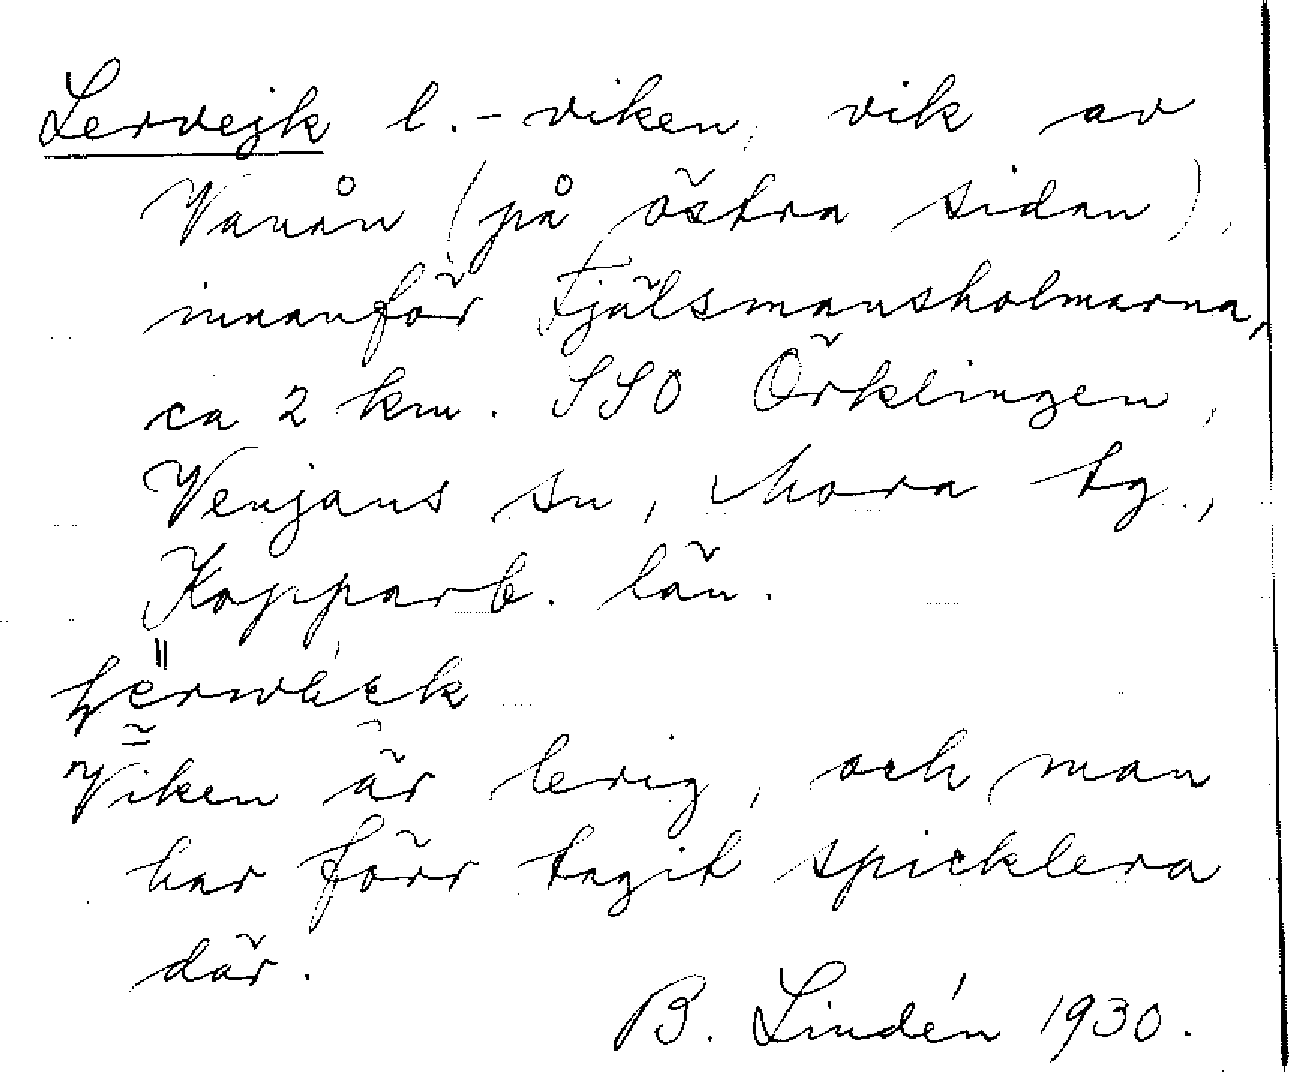 Lervejk l. -viken, vik av
Vanån (på östra sidan),
innanför Fjälsmansholmarna,
ca 2 km. SSO Örklingen,
Venjans sn, Mora tg.,
Kopparb. län.
Viken är lerig, och man
har förr tagit spicklera
där.
B. Lindén 1930.